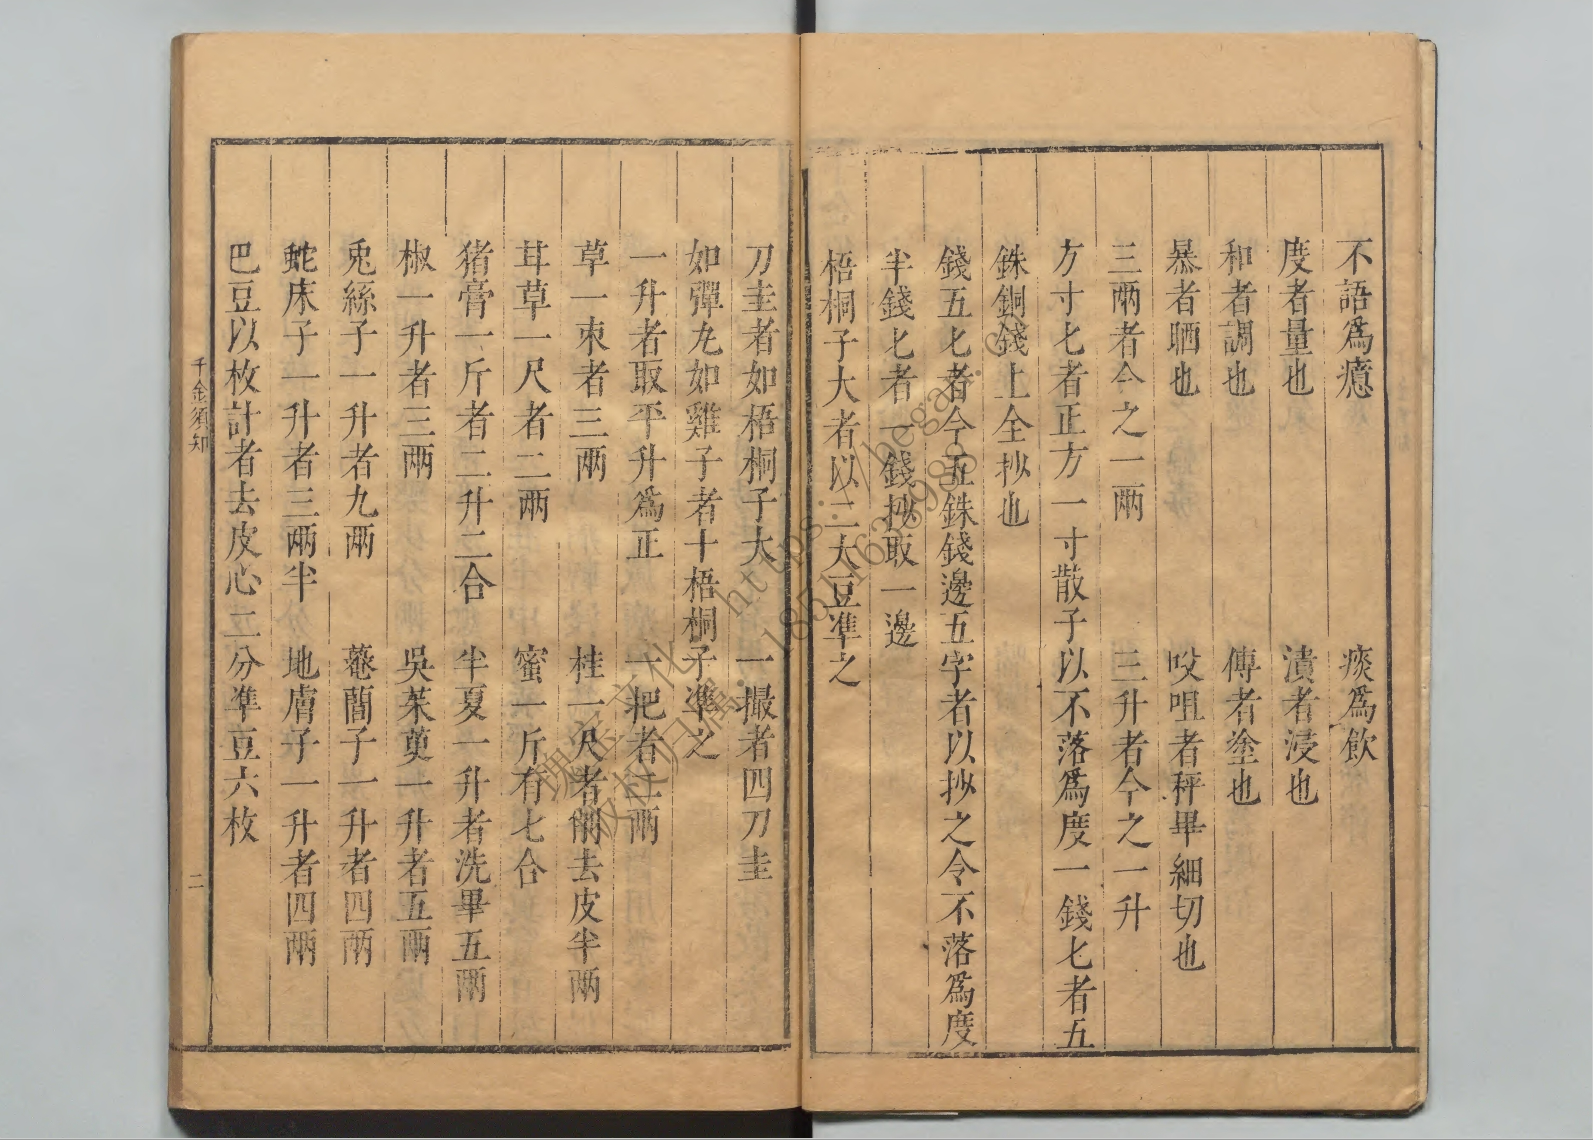 不語爲癔　痰爲飲
度者量也　漬者浸也
和者調也　傅者塗也
暴者晒也　㕮咀者秤畢細切也
三兩者今之一兩　三升者今之一升
方寸匕者正方一寸散子以不落爲度一錢匕者五
銖銅錢上全抄也
錢五匕者今五銖錢邊五字者以抄之令不落爲度
半錢匕者一錢抄取一邊
梧桐子大者以二大豆準之
刀圭者如梧桐子大　一撮者四刀圭
如彈丸如雞子者十梧桐子準之
一升者取平升爲正　一把者二兩
草一束者三兩　桂一尺者削去皮半兩
茸草一尺者二兩　蜜一斤有七合
猪膏一斤者二升二合　半夏一升者洗畢五兩
椒一升者三兩　吳茱萸一升者五兩
兎絲子一升者九兩　菴䕡子一升者四兩
蛇床子一升者三兩半　地膚子一升者四兩
巴豆以枚計者去皮心二分準豆六枚
千金須知　二
https://bega